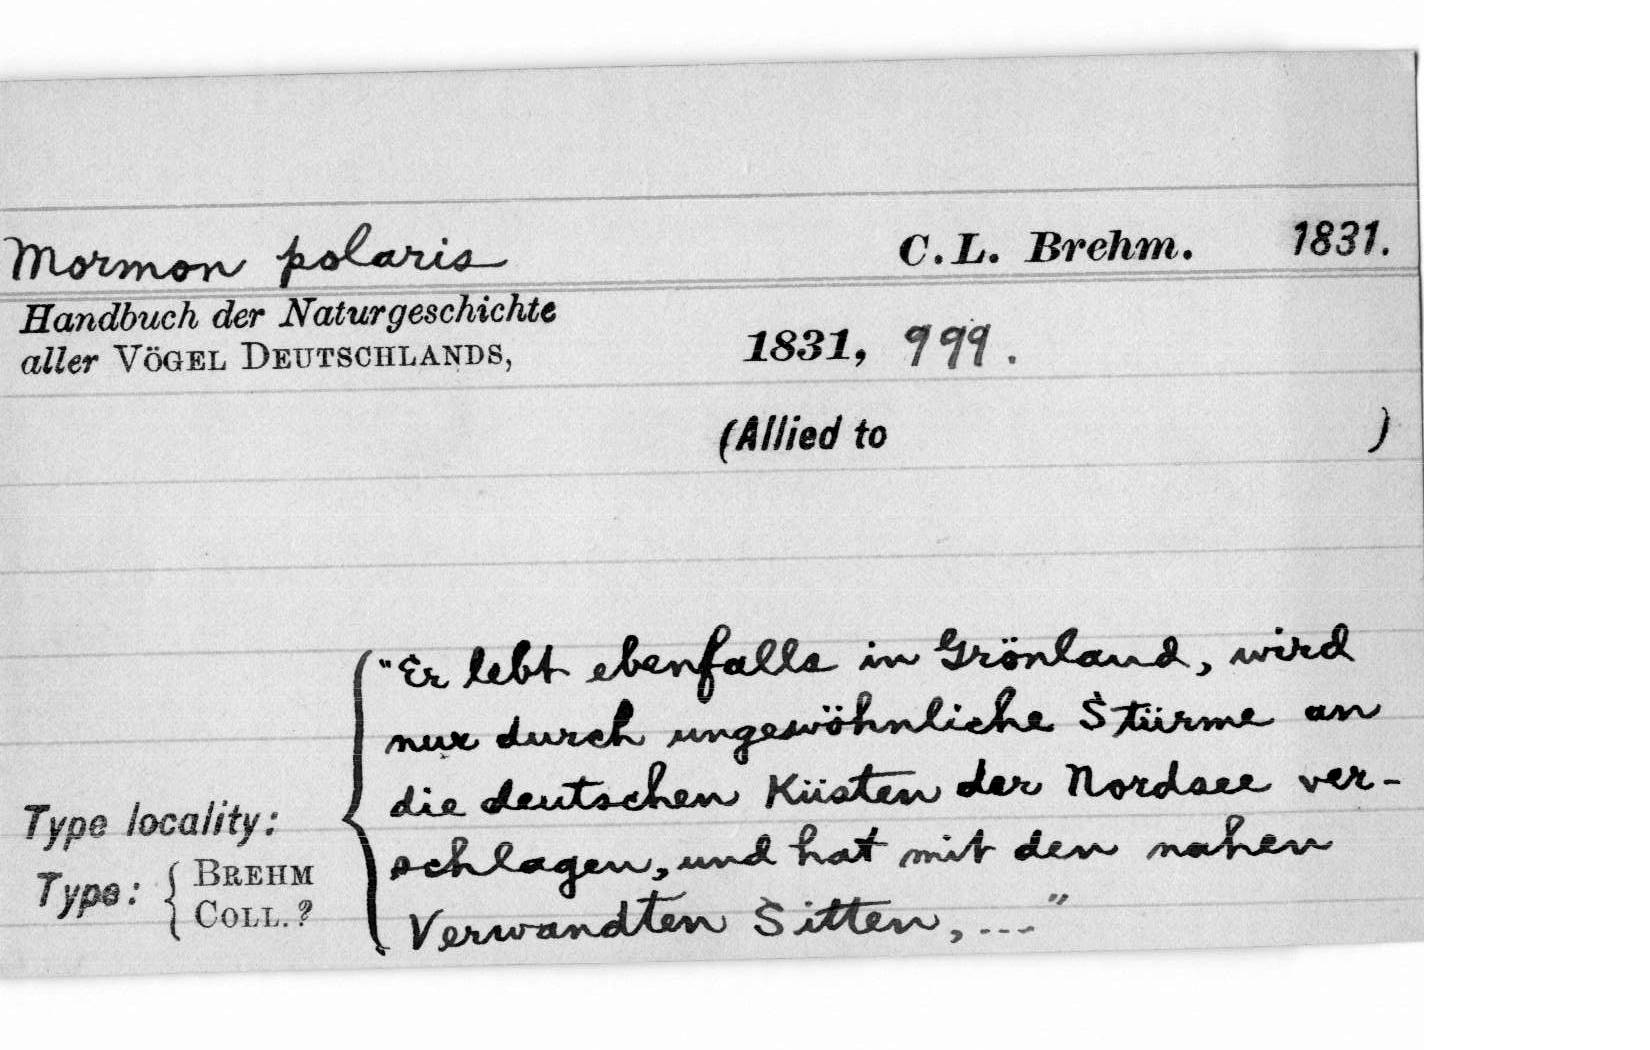 Mormon polaris C.L. Brehm. 1831.
Handbuch der Naturgeschichte
aller VÖGEL DEUTSCHLANDS, 1831, 999.
(Allied to )
"Er lebt ebenfalls in Grönland, wird
nur durch ungewöhnliche Stürme an
die deutschen Küsten der Nordsee ver-
schlagen, und hat mit den nahen
Verwandten Sitten, ..."
Type locality:
Type: { BREHM
COLL.?